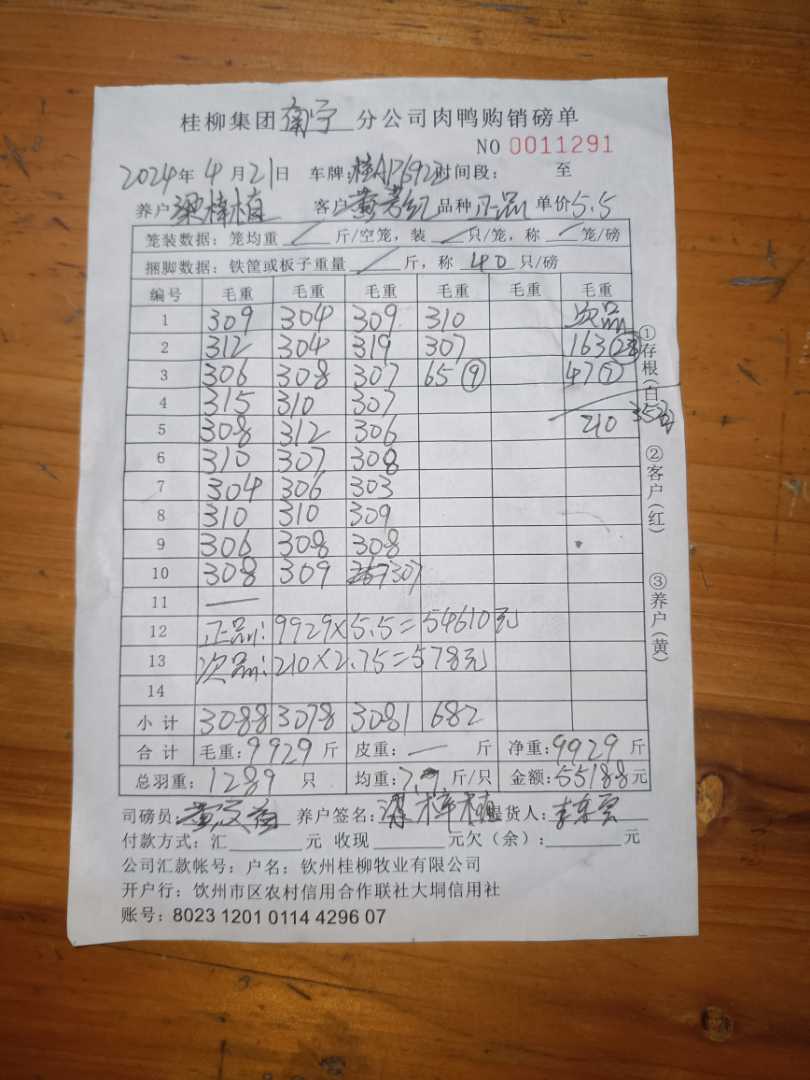 桂柳集团南宁分公司肉鸭购销磅单
NO 0011291
2024年4月21日 车牌:桂AP692 时间段: 至
养户 梁樟植 客户 黄 品种 正品 单价5.5
笼装数据:笼均重 / 斤/空笼,装 / 只/笼,称 / 笼/磅
捆脚数据:铁筐或板子重量 / 斤,称 40 只/磅
编号 毛重 毛重 毛重 毛重 毛重 毛重
1 309 304 309 310 次品
2 312 304 319 307 163
3 306 308 307 65⑨ 47⑦
4 315 310 307
5 308 312 306 210 35
6 310 307 308
7 304 306 303
8 310 310 309
9 306 308 308
10 308 309 307
11 —
12 正品:9929×5.5=54610元
13 次品:210×2.75=578元
14
小计 3088 3078 3081 682
合计 毛重:9929斤 皮重:— 斤 净重:9929斤
总羽重:1289 只 均重:7.7斤/只 金额:55188元
司磅员: 养户签名:梁樟植 提货人:
付款方式:汇 元 收现 元欠(余): 元
公司汇款帐号:户名:钦州桂柳牧业有限公司
开户行:钦州市区农村信用合作联社大垌信用社
账号:8023 1201 0114 4296 07
①存根(白)
②客户(红)
③养户(黄)